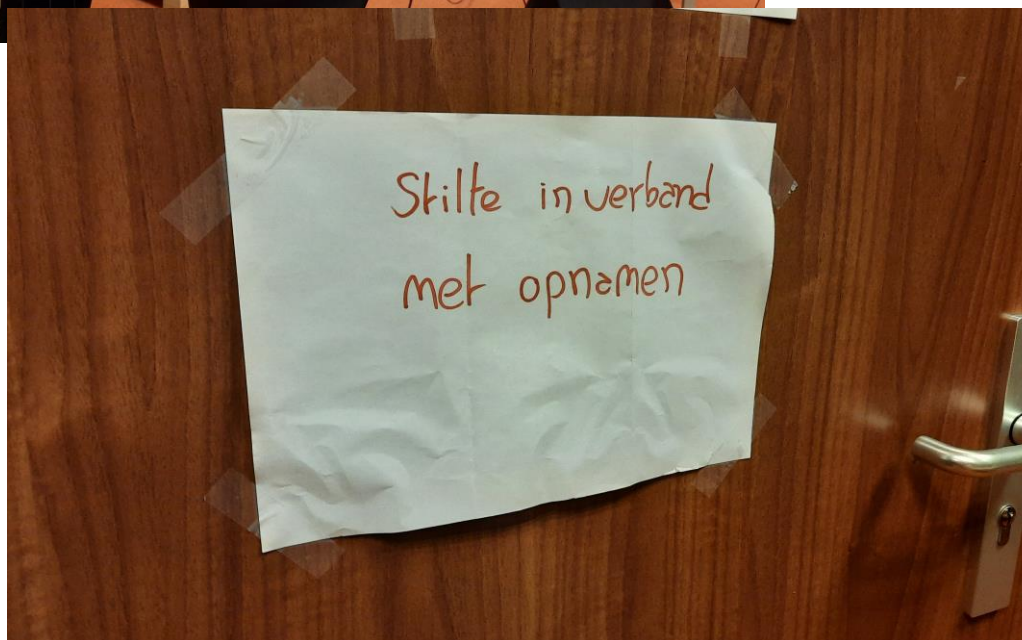 Stilte in verband
met opnamen